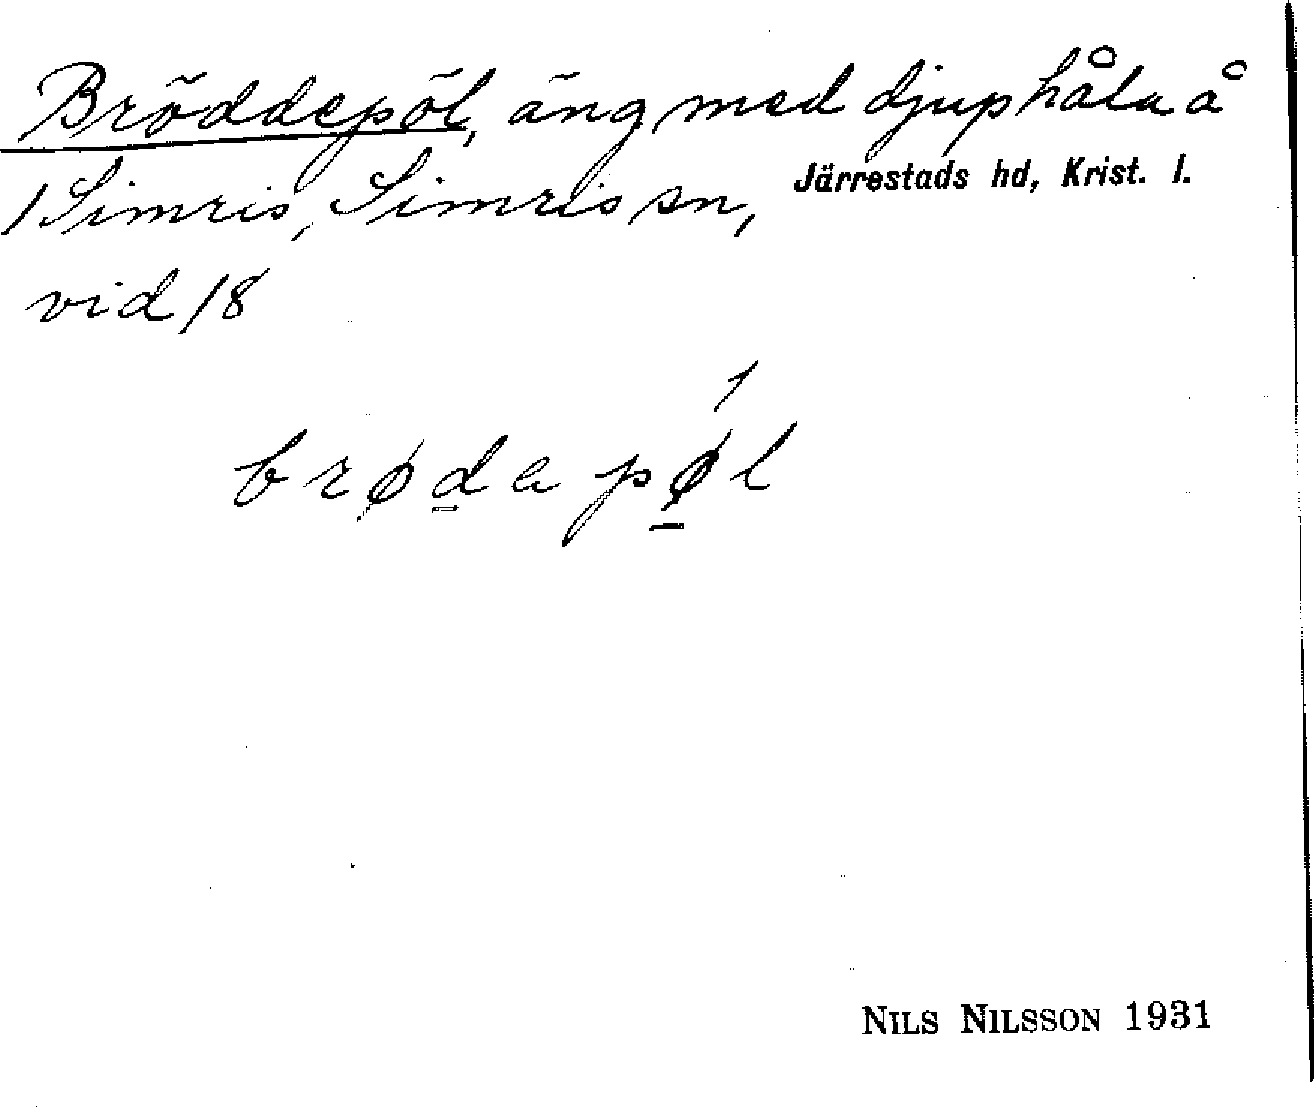 Bröddepöl, äng med djup håla å
1 Simris, Simris sn, Järrestads hd, Krist. l.
vid 18
brødapøl
NILS NILSSON 1931